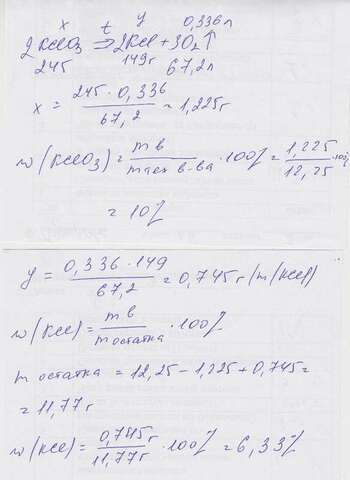 x y 0,336л
2KClO3 t⇒ 2KCl + 3O2↑
245 149г 67,2л
x = 245 · 0,336 / 67,2 = 1,225г
w(KClO3) = m в / m исх в-ва · 100% = 1,225 / 12,25 · 100%
= 10%
y = 0,336 · 149 / 67,2 = 0,745г (m(KCl))
w(KCl) = m в / m остатка · 100%
m остатка = 12,25 - 1,225 + 0,745 =
= 11,77г
w(KCl) = 0,745г / 11,77г · 100% = 6,33%